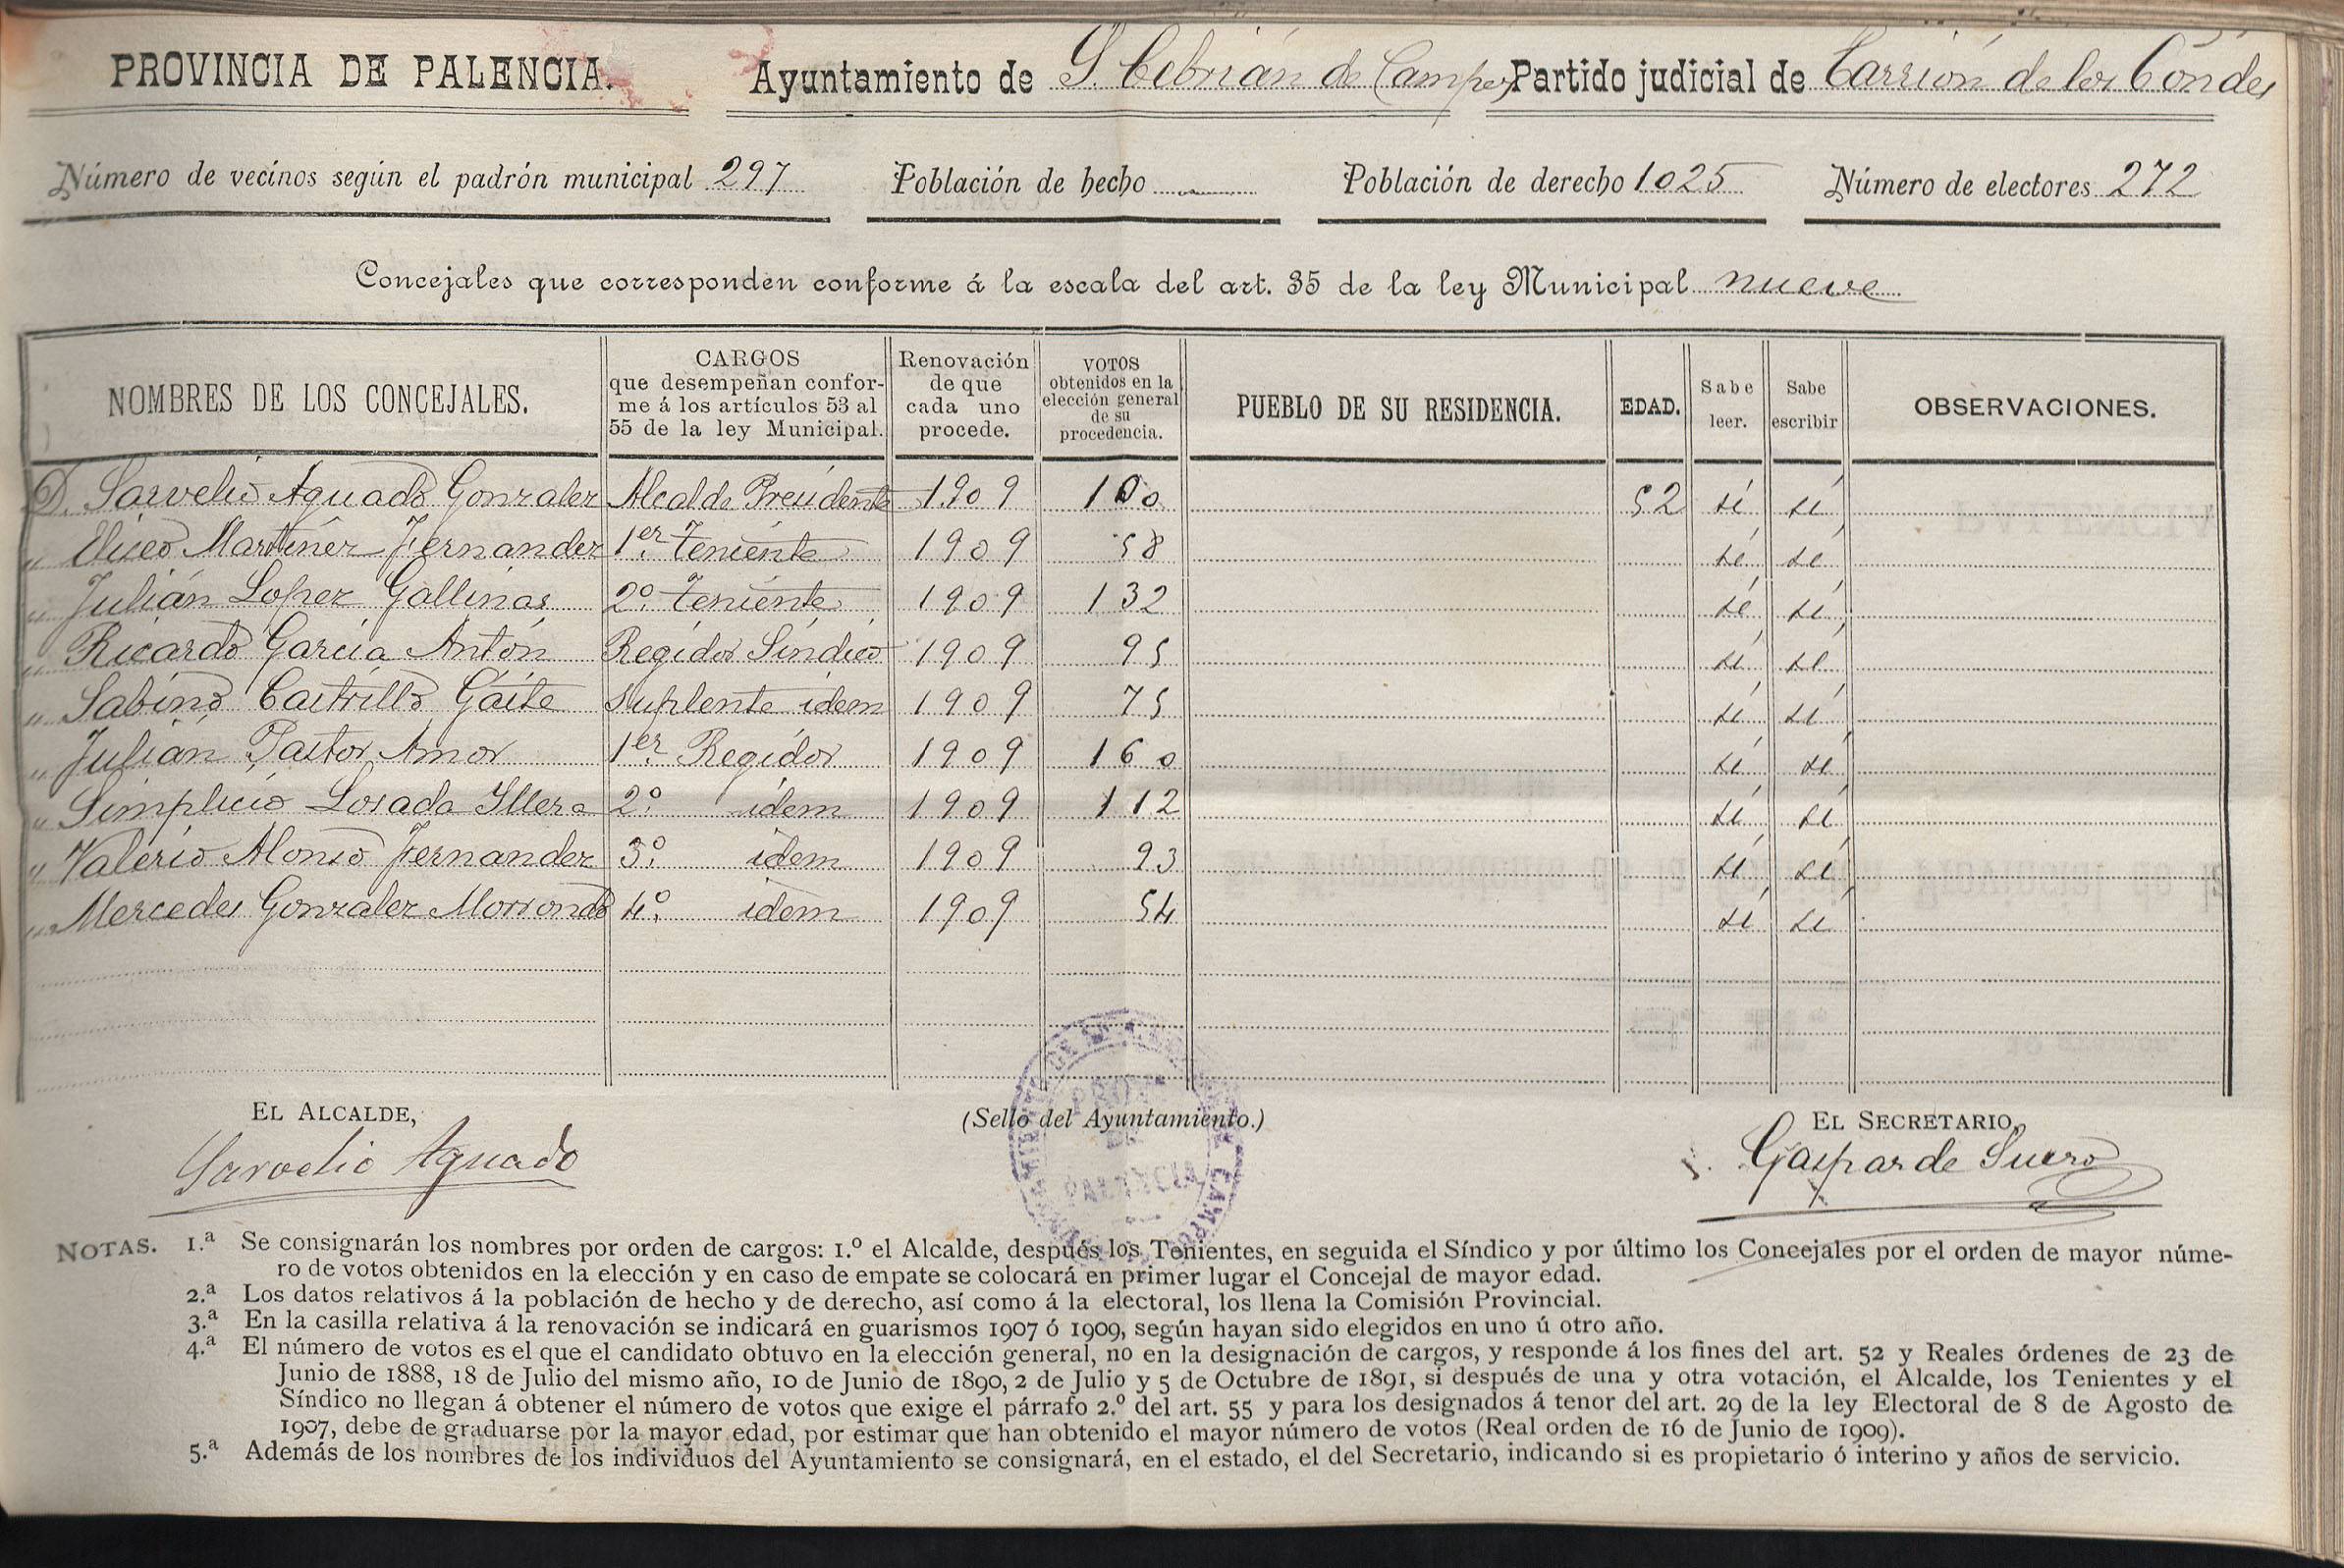 PROVINCIA DE PALENCIA. Ayuntamiento de S. Cebrián de Campos Partido judicial de Carrión de los Condes
Número de vecinos según el padrón municipal 297 Población de hecho Población de derecho 1025 Número de electores 272
Concejales que corresponden conforme á la escala del art. 35 de la ley Municipal nueve
NOMBRES DE LOS CONCEJALES.
CARGOS
que desempeñan confor-
me á los artículos 53 al
55 de la ley Municipal.
Renovación
de que
cada uno
procede.
VOTOS
obtenidos en la
elección general
de su
procedencia.
PUEBLO DE SU RESIDENCIA.
EDAD.
Sabe
leer.
Sabe
escribir
OBSERVACIONES.
D. Sarvelio Aguado Gonzalez Alcalde Presidente 1909 100 52 sí sí
" Eliseo Martínez Fernandez 1er Teniente 1909 58 sí sí
" Julián Lopez Gallinas 2º Teniente 1909 132 sí sí
" Ricardo García Antón Regidor Síndico 1909 95 sí sí
" Sabino Castrillo Gaite suplente idem 1909 75 sí sí
" Julián Pastor Amor 1er Regidor 1909 160 sí sí
" Simplicio Losada Illera 2º idem 1909 112 sí sí
" Valerio Alonso Fernandez 3º idem 1909 93 sí sí
" Mercedes Gonzalez Morrondo 4º idem 1909 54 sí sí
EL ALCALDE,
(Sello del Ayuntamiento.)
EL SECRETARIO,
Sarvelio Aguado
Gaspar de Suero
PALENCIA
NOTAS. 1.ª Se consignarán los nombres por orden de cargos: 1.º el Alcalde, después los Tenientes, en seguida el Síndico y por último los Concejales por el orden de mayor núme-
ro de votos obtenidos en la elección y en caso de empate se colocará en primer lugar el Concejal de mayor edad.
2.ª Los datos relativos á la población de hecho y de derecho, así como á la electoral, los llena la Comisión Provincial.
3.ª En la casilla relativa á la renovación se indicará en guarismos 1907 ó 1909, según hayan sido elegidos en uno ú otro año.
4.ª El número de votos es el que el candidato obtuvo en la elección general, no en la designación de cargos, y responde á los fines del art. 52 y Reales órdenes de 23 de
Junio de 1888, 18 de Julio del mismo año, 10 de Junio de 1890, 2 de Julio y 5 de Octubre de 1891, si después de una y otra votación, el Alcalde, los Tenientes y el
Síndico no llegan á obtener el número de votos que exige el párrafo 2.º del art. 55 y para los designados á tenor del art. 29 de la ley Electoral de 8 de Agosto de
1907, debe de graduarse por la mayor edad, por estimar que han obtenido el mayor número de votos (Real orden de 16 de Junio de 1909).
5.ª Además de los nombres de los individuos del Ayuntamiento se consignará, en el estado, el del Secretario, indicando si es propietario ó interino y años de servicio.